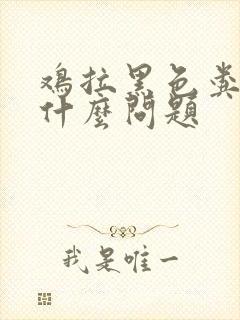 鸡拉黑色粪
什麼問題
我是唯一